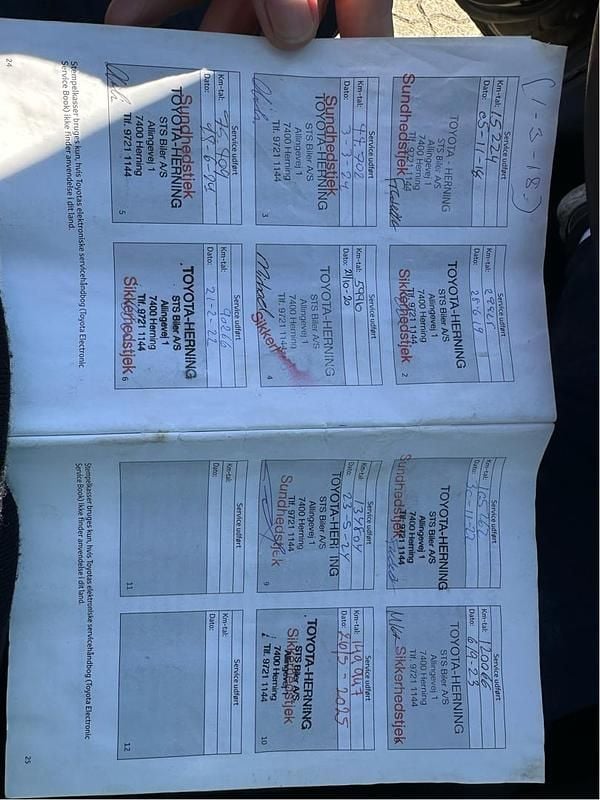 (1-3-18.)
Service udført
Km-tal: 15224
Dato: 05-11-18
TOYOTA - HERNING
STS Biler A/S
Allingevej 1
7400 Herning
Tlf. 9721 1144
Sundhedstjek
Service udført
Km-tal:
Dato: 28-6-19
TOYOTA-HERNING
STS Biler A/S
Allingevej 1
7400 Herning
Tlf. 9721 1144
Sikkerhedstjek
2
Service udført
Km-tal:
Dato:
TOYOTA-HERNING
STS Biler A/S
Allingevej 1
7400 Herning
Tlf. 9721 1144
Sundhedstjek
3
Service udført
Km-tal:
Dato: 21/10-20
TOYOTA-HERNING
STS Biler A/S
Allingevej 1
7400 Herning
Tlf. 9721 1144
4
Service udført
Km-tal:
Dato:
Sundhedstjek
TOYOTA-HERNING
STS Biler A/S
Allingevej 1
7400 Herning
Tlf. 9721 1144
5
Service udført
Km-tal: 90266
Dato: 21-2-22
TOYOTA-HERNING
STS Biler A/S
Allingevej 1
7400 Herning
Tlf. 9721 1144
Sikkerhedstjek
6
Stempelkasser bruges kun, hvis Toyotas elektroniske servicehåndbog (Toyota Electronic
Service Book) ikke finder anvendelse i dit land.
24
Service udført
Km-tal:
Dato: 30-11-22
TOYOTA-HERNING
STS Biler A/S
Allingevej 1
7400 Herning
Tlf. 9721 1144
Sundhedstjek
Service udført
Km-tal: 120066
Dato: 6/9-23
TOYOTA-HERNING
STS Biler A/S
Allingevej 1
7400 Herning
Tlf. 9721 1144
Sikkerhedstjek
Service udført
Km-tal:
Dato: 23-5-24
TOYOTA-HERNING
STS Biler A/S
Allingevej 1
7400 Herning
Tlf. 9721 1144
Sundhedstjek
9
Service udført
Km-tal:
Dato: 20/3-2025
TOYOTA-HERNING
STS Biler A/S
Allingevej 1
7400 Herning
Tlf. 9721 1144
Sikkerhedstjek
10
Service udført
Km-tal:
Dato:
11
Service udført
Km-tal:
Dato:
12
Stempelkasser bruges kun, hvis Toyotas elektroniske servicehåndbog (Toyota Electronic
Service Book) ikke finder anvendelse i dit land.
25